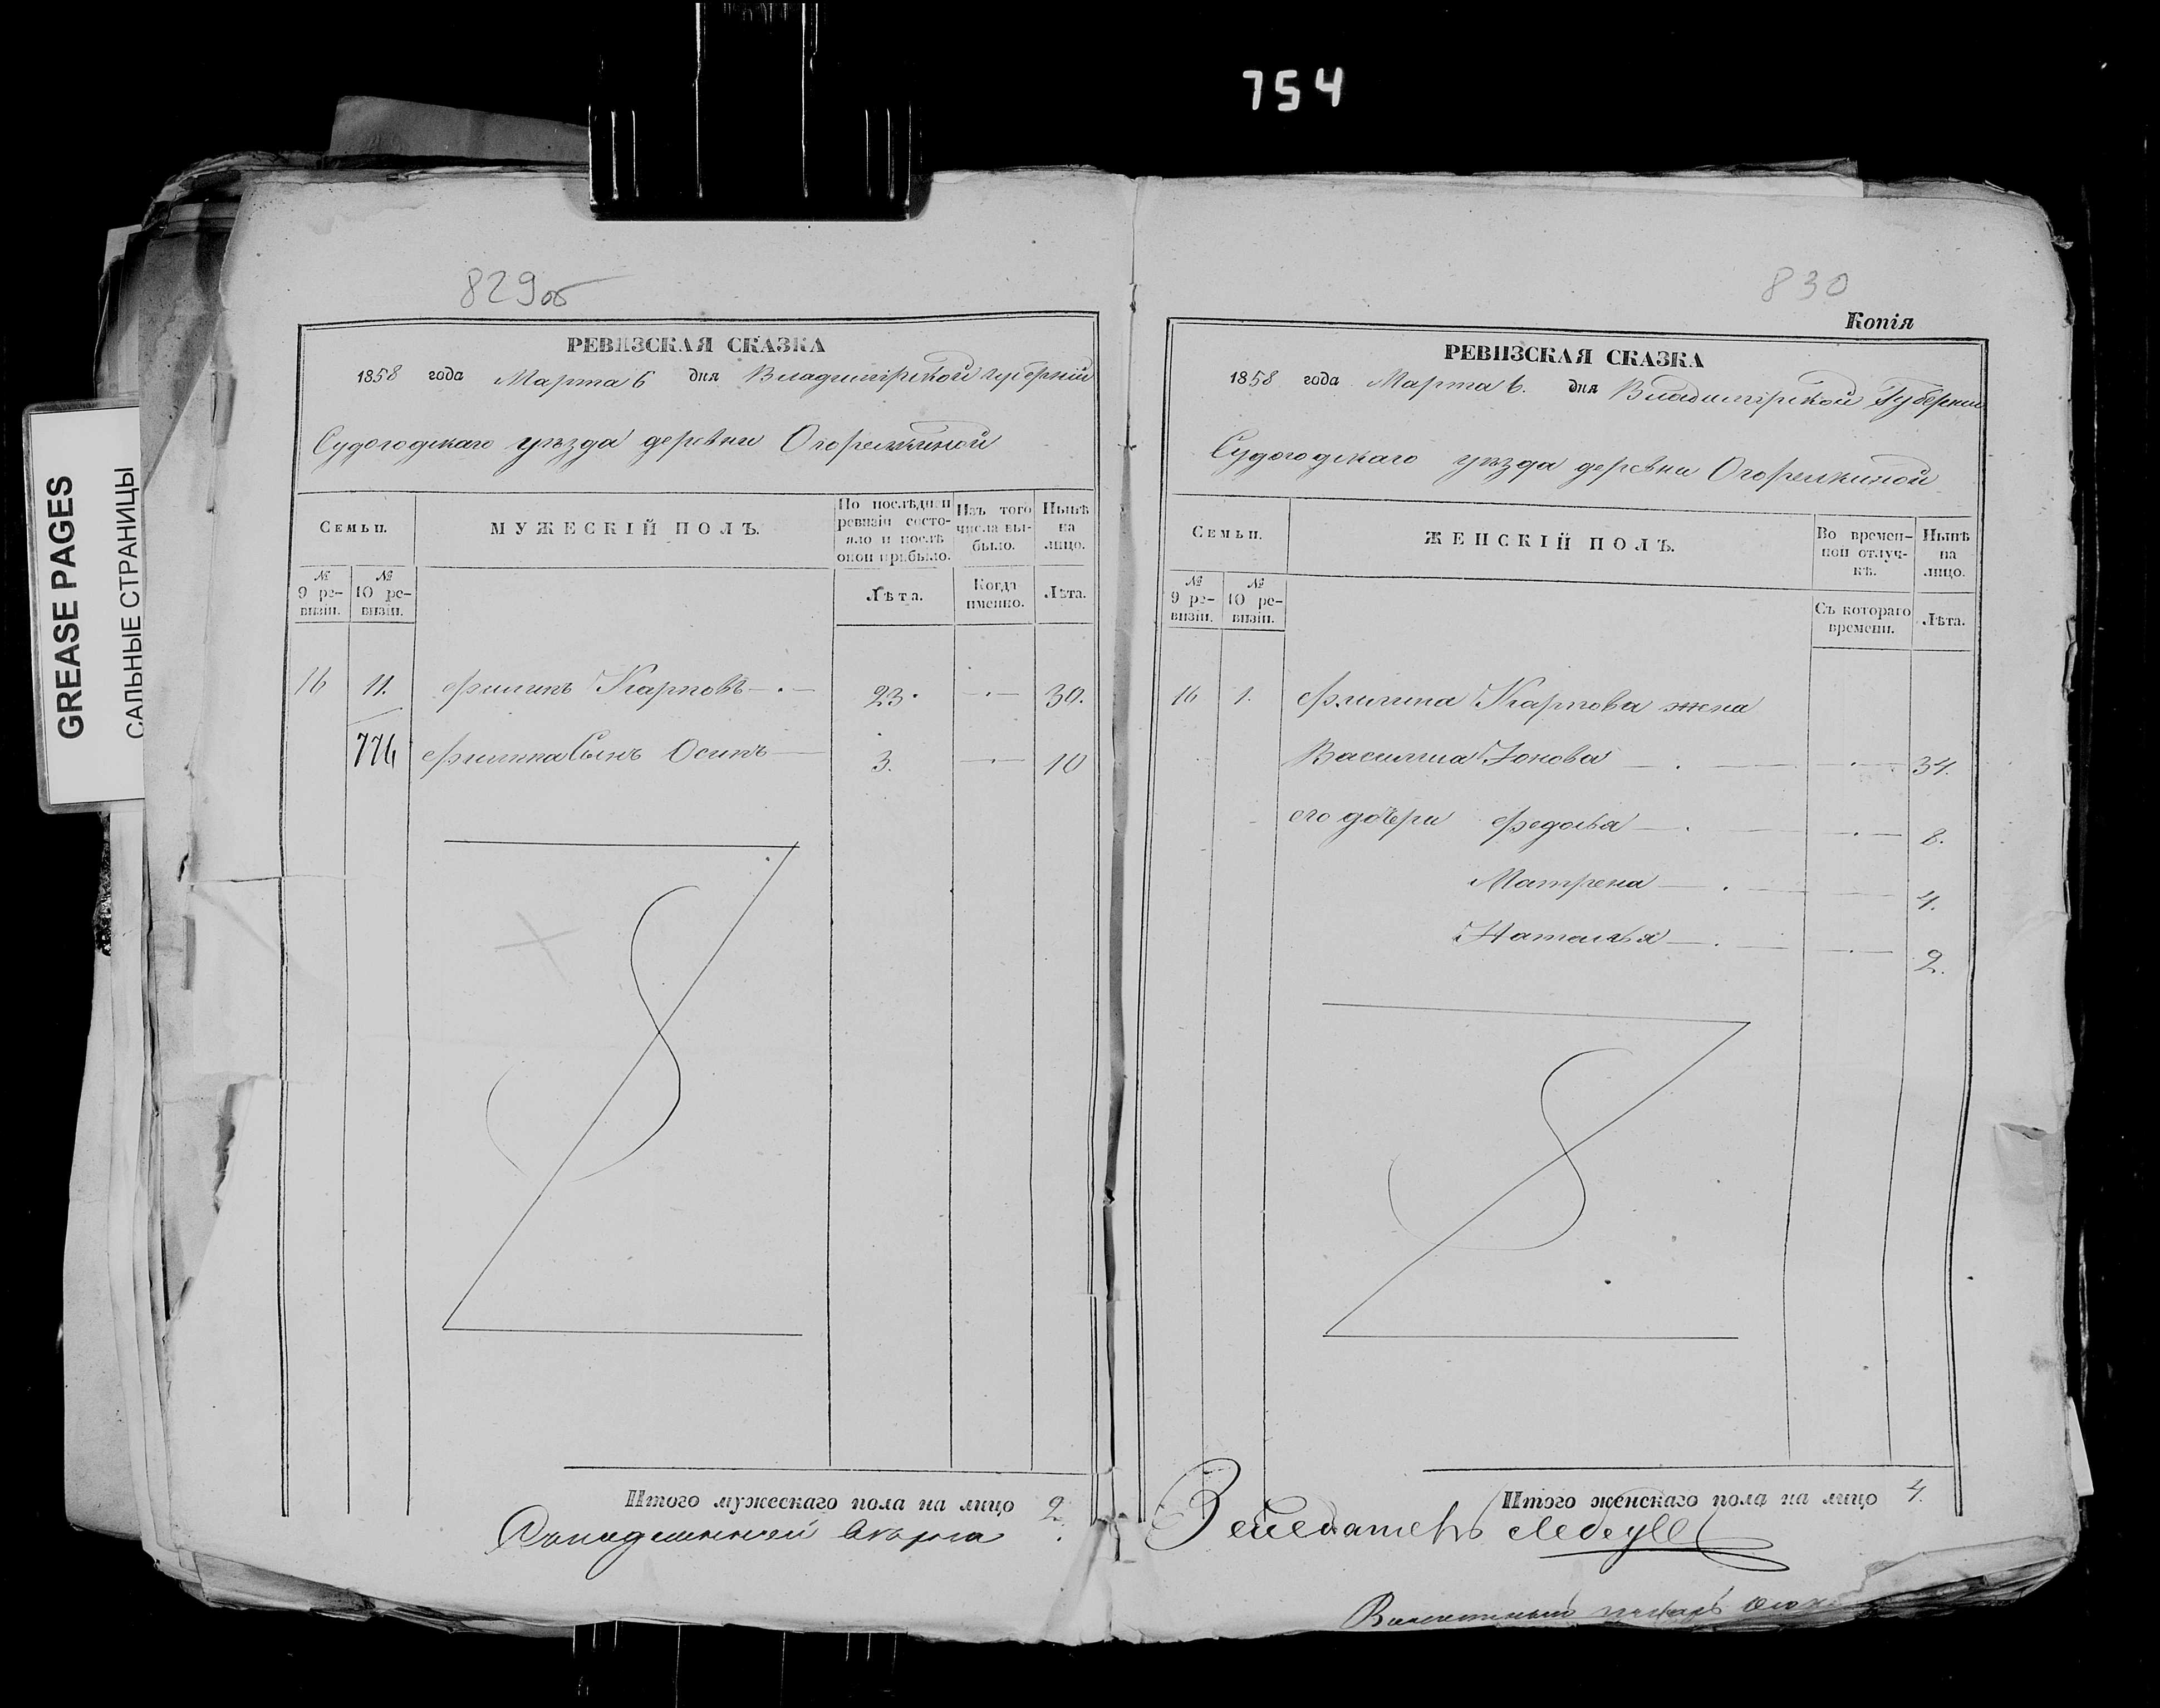 754
GREASE PAGES
САЛЬНЫЕ СТРАНИЦЫ
829об
РЕВИЗСКАЯ СКАЗКА
1858 года Марта 6 дня Владимірской губерніи
Судогодскаго уѣзда деревни Огорелкиной
Семьи.
МУЖЕСКІЙ ПОЛЪ.
По послѣдней ревизіи состояло и послѣ оной прибыло.
Изъ того числа выбыло.
Нынѣ на лицо.
№ 9 ревизіи.
№ 10 ревизіи.
Лѣта.
Когда именно.
Лѣта.
16 11. Филипъ Карповъ 23. 30.
776 Филипа Сынъ Осипъ 3. 10
Итого мужескаго пола на лицо 2.
830
Копія
РЕВИЗСКАЯ СКАЗКА
1858 года Марта 6. дня Владимірской Губерніи
Судогодскаго уѣзда деревни Огорелкиной
Семьи.
ЖЕНСКІЙ ПОЛЪ.
Во временной отлучкѣ.
Нынѣ на лицо.
№ 9 ревизіи.
№ 10 ревизіи.
Съ котораго времени.
Лѣта.
16 1. Филипа Карпова жена
Василиса Іонова 34.
его дочери Федосья 8.
Матрена 4.
Наталья 2.
Итого женскаго пола на лицо 4.